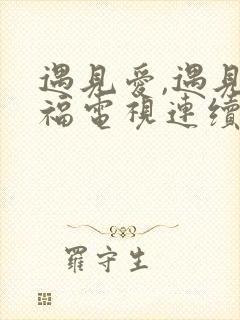 遇見愛,遇見
福電視連續
羅守生